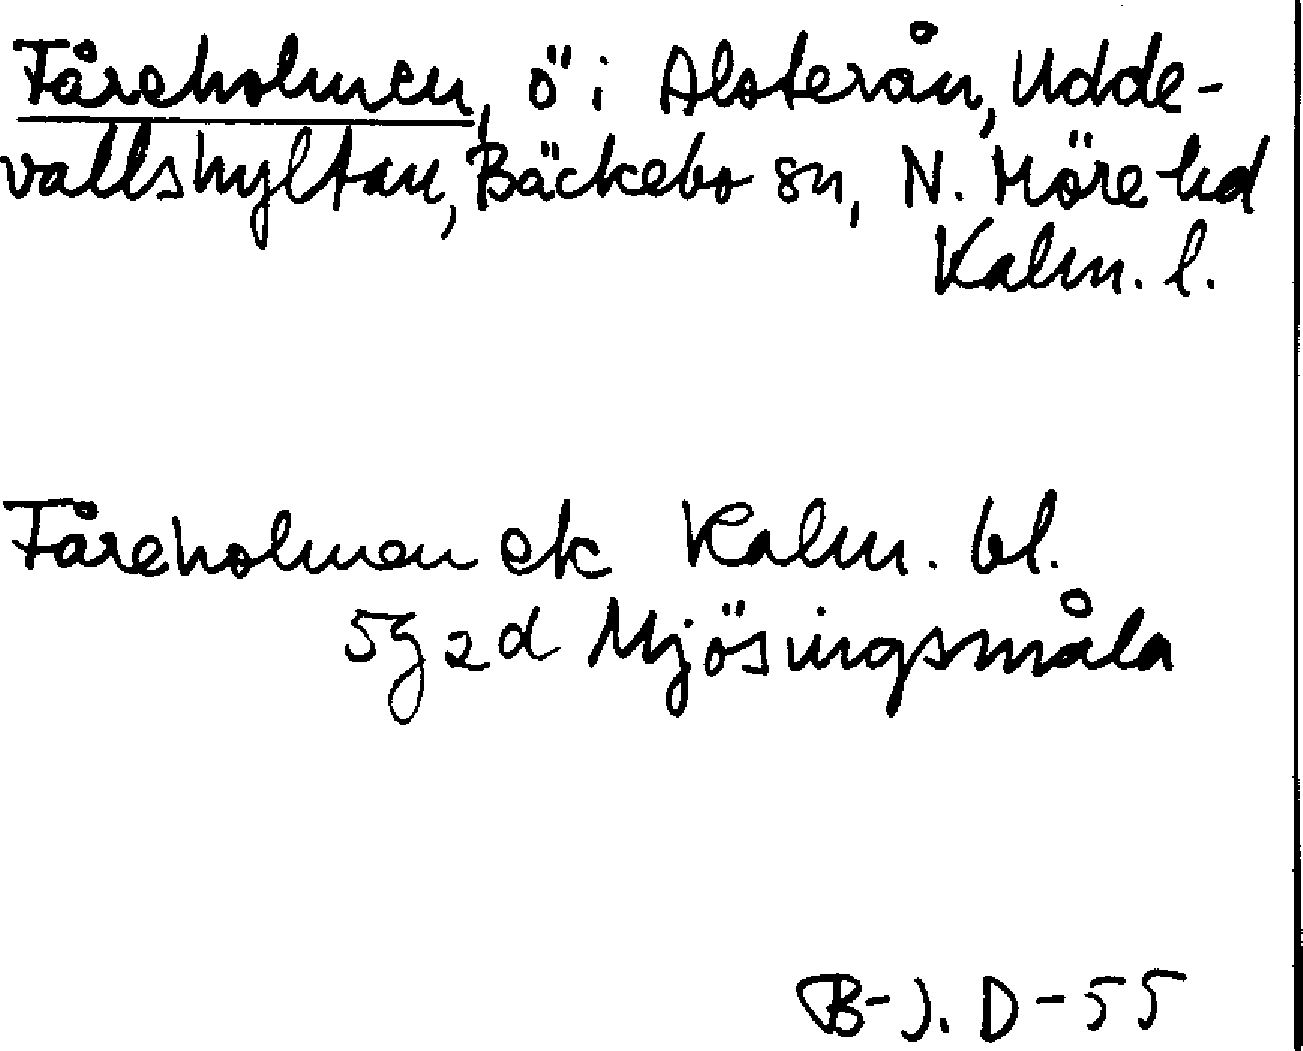 Fåreholmen, ö i Alsterån, Udde-
vallshyltan, Bäckebo sn, N. Möre hd
Kalm. l.
Fåreholmen ek Kalm. bl.
5g2d Mjösingsmåla
B-J. D-55